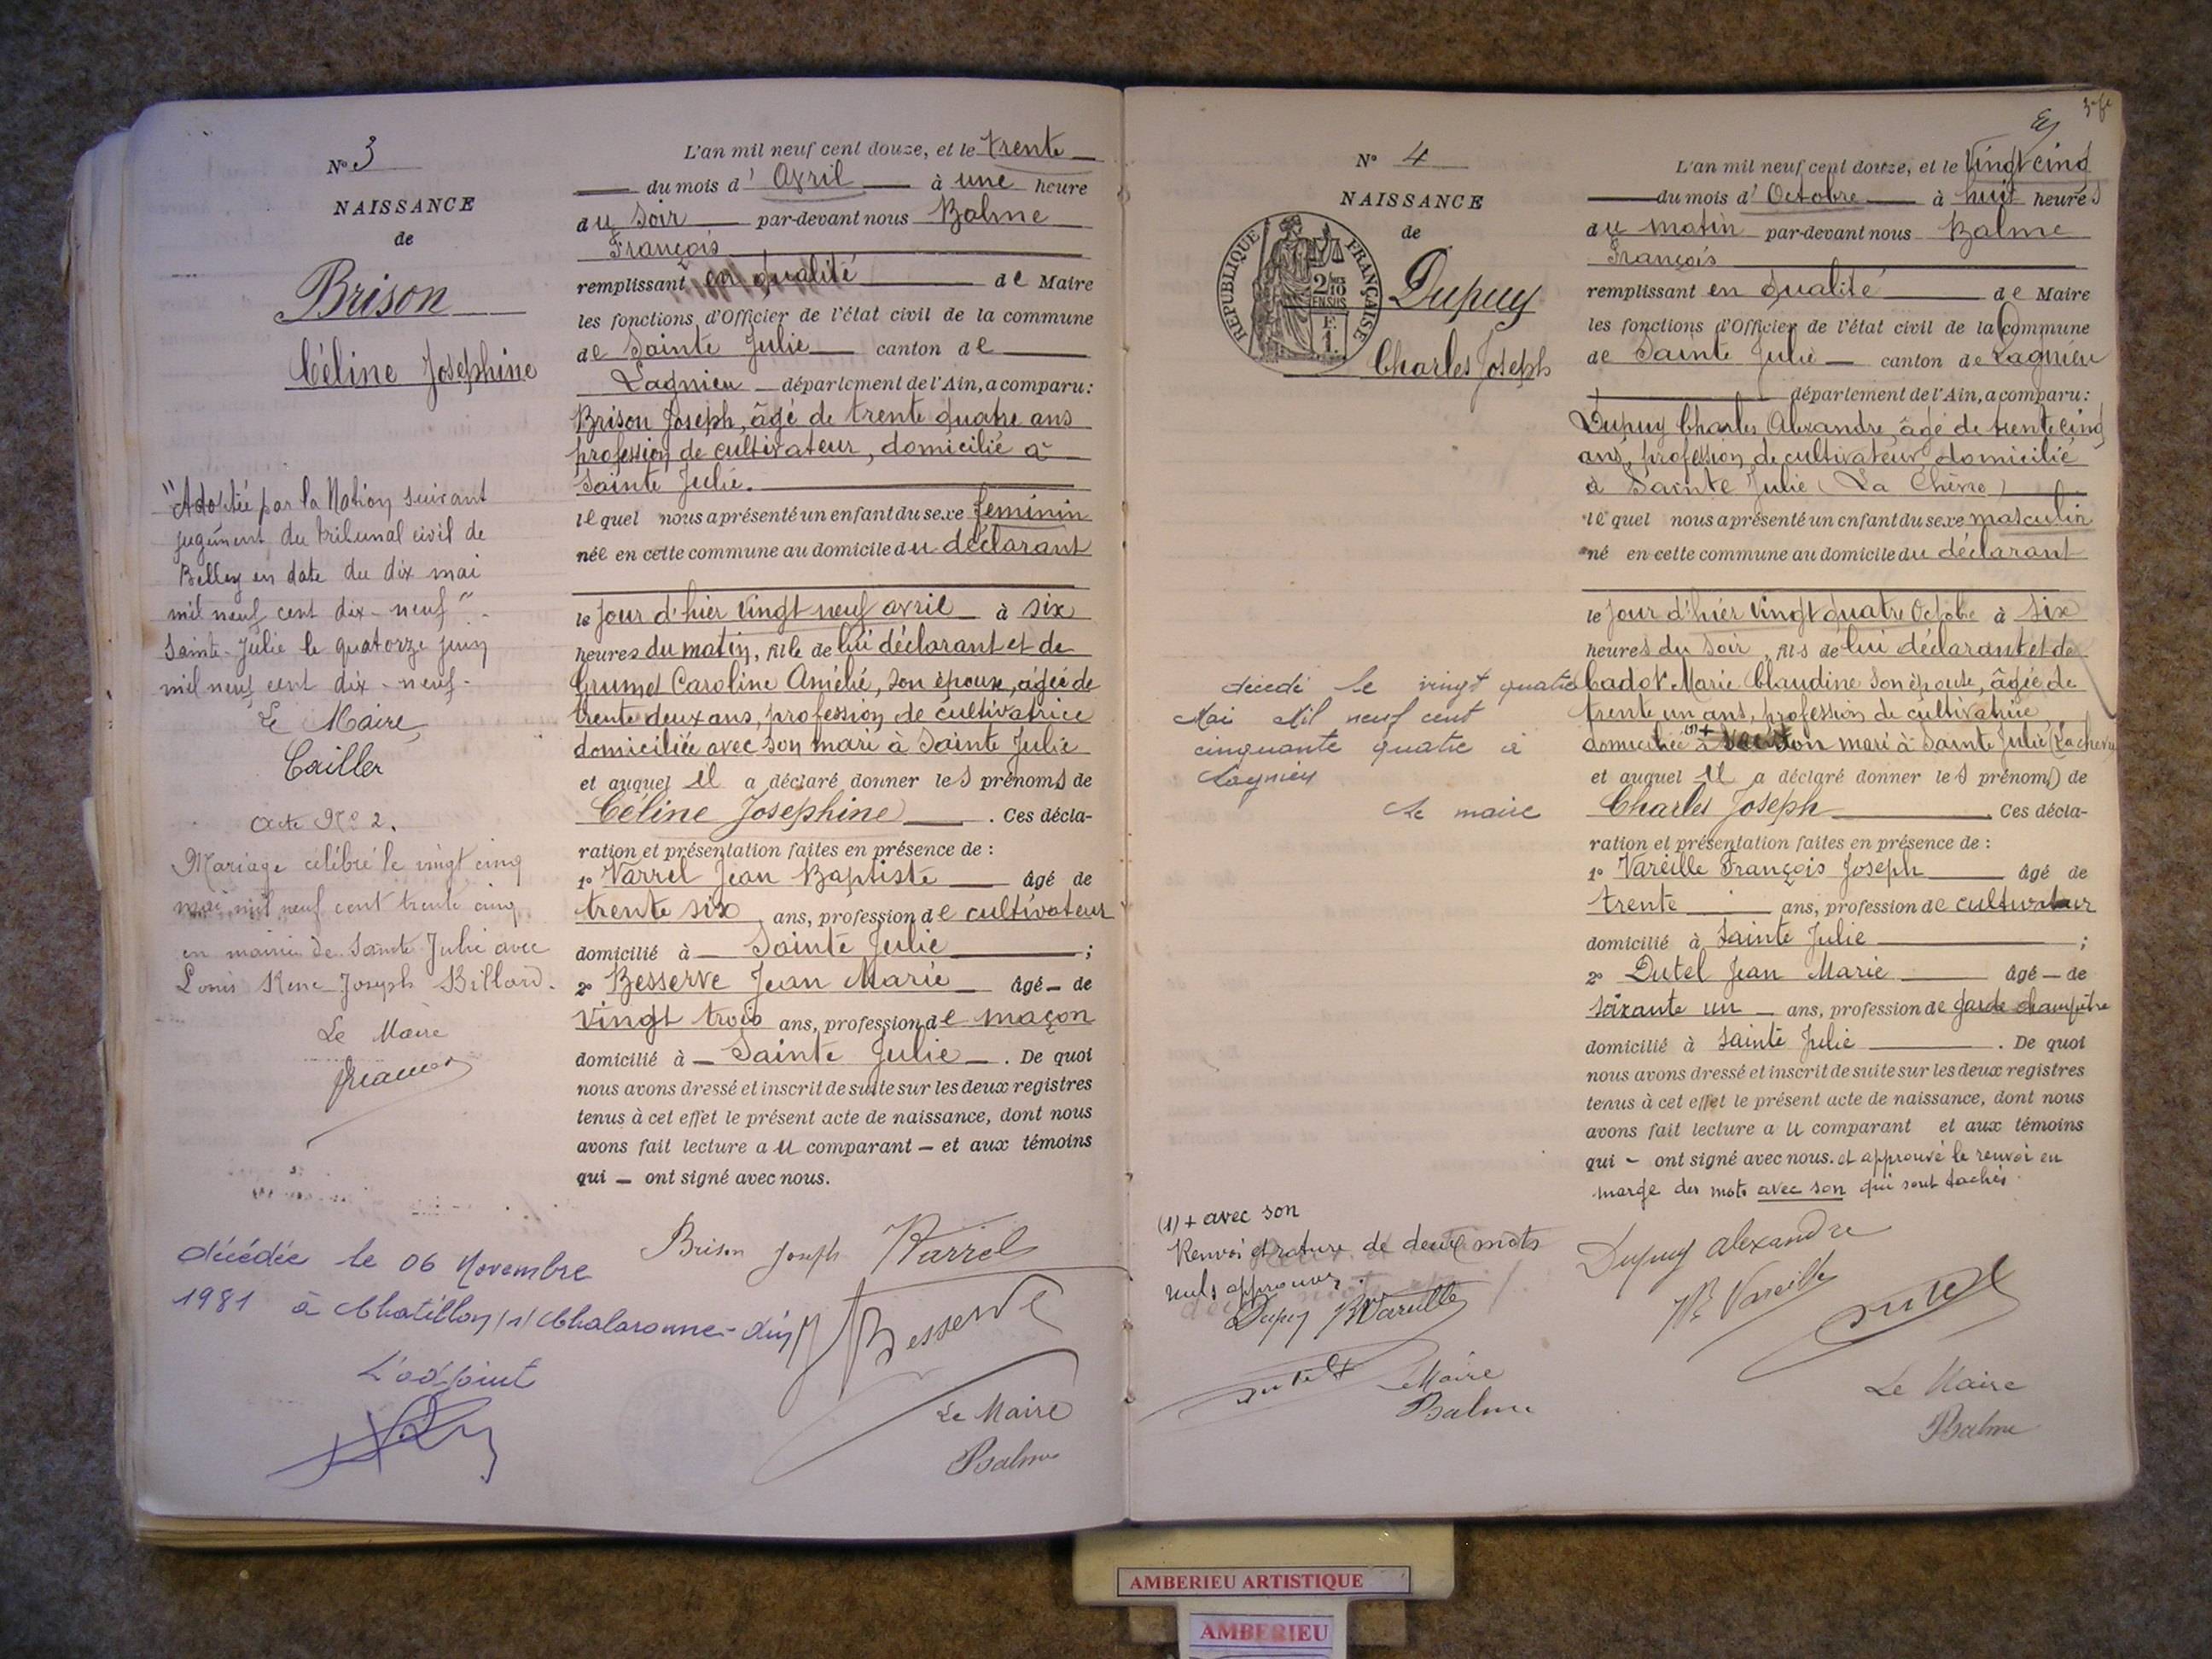 N° 3
NAISSANCE
de
Brison
Céline Josephine
"Adoptée par la Nation suivant
jugement du tribunal civil de
Belley en date du dix mai
mil neuf cent dix-neuf"-
Sainte-Julie le quatorze juin
mil neuf cent dix-neuf-
Le Maire,
Cailler
Acte N° 2.
Mariage célébré le vingt cinq
mai mil neuf cent trente cinq
en mairie de Sainte Julie avec
Louis René Joseph Billard.
Le Maire
décédée le 06 Novembre
1981 à Chatillon/s/Chalaronne-Ain
L'adjoint
L'an mil neuf cent douze, et le trente
du mois d'Avril à une heure
du soir par-devant nous Balme
François
remplissant en qualité de Maire
les fonctions d'Officier de l'état civil de la commune
de Sainte Julie canton de
Lagnieu département de l'Ain, a comparu:
Brison Joseph, âgé de trente quatre ans
profession de cultivateur, domicilié à
Sainte Julie.
lequel nous a présenté un enfant du sexe féminin
née en cette commune au domicile du déclarant
le jour d'hier vingt neuf avril à six
heures du matin, fille de lui déclarant et de
Grumet Caroline Amélie, son épouse, âgée de
trente deux ans, profession de cultivatrice
domiciliée avec son mari à Sainte Julie
et auquel il a déclaré donner les prénoms de
Céline Josephine. Ces décla-
ration et présentation faites en présence de :
1° Varrel Jean Baptiste âgé de
trente six ans, profession de cultivateur
domicilié à Sainte Julie ;
2° Besserve Jean Marie âgé de
vingt trois ans, profession de maçon
domicilié à Sainte Julie. De quoi
nous avons dressé et inscrit de suite sur les deux registres
tenus à cet effet le présent acte de naissance, dont nous
avons fait lecture au comparant et aux témoins
qui ont signé avec nous.
Brison Joseph Varrel
Besserve
Le Maire
Balme
N° 4
NAISSANCE
de
REPUBLIQUE FRANÇAISE
2/10
EN SUS
F.
1.
Dupuy
Charles Joseph
décédé le vingt quatre
Mai Mil neuf cent
cinquante quatre à
Lagnieu
Le maire
(1) + avec son
Renvoi et rature de deux mots
nuls approuvés.
Dupuy Vareille
Dutel Le Maire
Balme
L'an mil neuf cent douze, et le vingt cinq
du mois d'Octobre à huit heures
du matin par-devant nous Balme
François
remplissant en qualité de Maire
les fonctions d'Officier de l'état civil de la Commune
de Sainte Julie canton de Lagnieu
département de l'Ain, a comparu:
Dupuy Charles Alexandre, âgé de trente cinq
ans, profession de cultivateur domicilié
à Sainte Julie (La Chèvre)
lequel nous a présenté un enfant du sexe masculin
né en cette commune au domicile du déclarant
le jour d'hier vingt quatre Octobre à six
heures du soir, fils de lui déclarant et de
Cadot Marie Claudine son épouse, âgée de
trente un ans, profession de cultivatrice
domiciliée (1)+ mari à Sainte Julie
et auquel il a déclaré donner les prénoms de
Charles Joseph. Ces décla-
ration et présentation faites en présence de :
1° Vareille François Joseph âgé de
trente ans, profession de cultivateur
domicilié à Sainte Julie ;
2° Dutel Jean Marie âgé de
soixante un ans, profession de garde champêtre
domicilié à Sainte Julie. De quoi
nous avons dressé et inscrit de suite sur les deux registres
tenus à cet effet le présent acte de naissance, dont nous
avons fait lecture au comparant et aux témoins
qui ont signé avec nous. et approuvé le renvoi en
marge des mots avec son qui sont tachés.
Dupuy alexandre
Vareille Dutel
Le Maire
Balme
AMBERIEU ARTISTIQUE
AMBERIEU